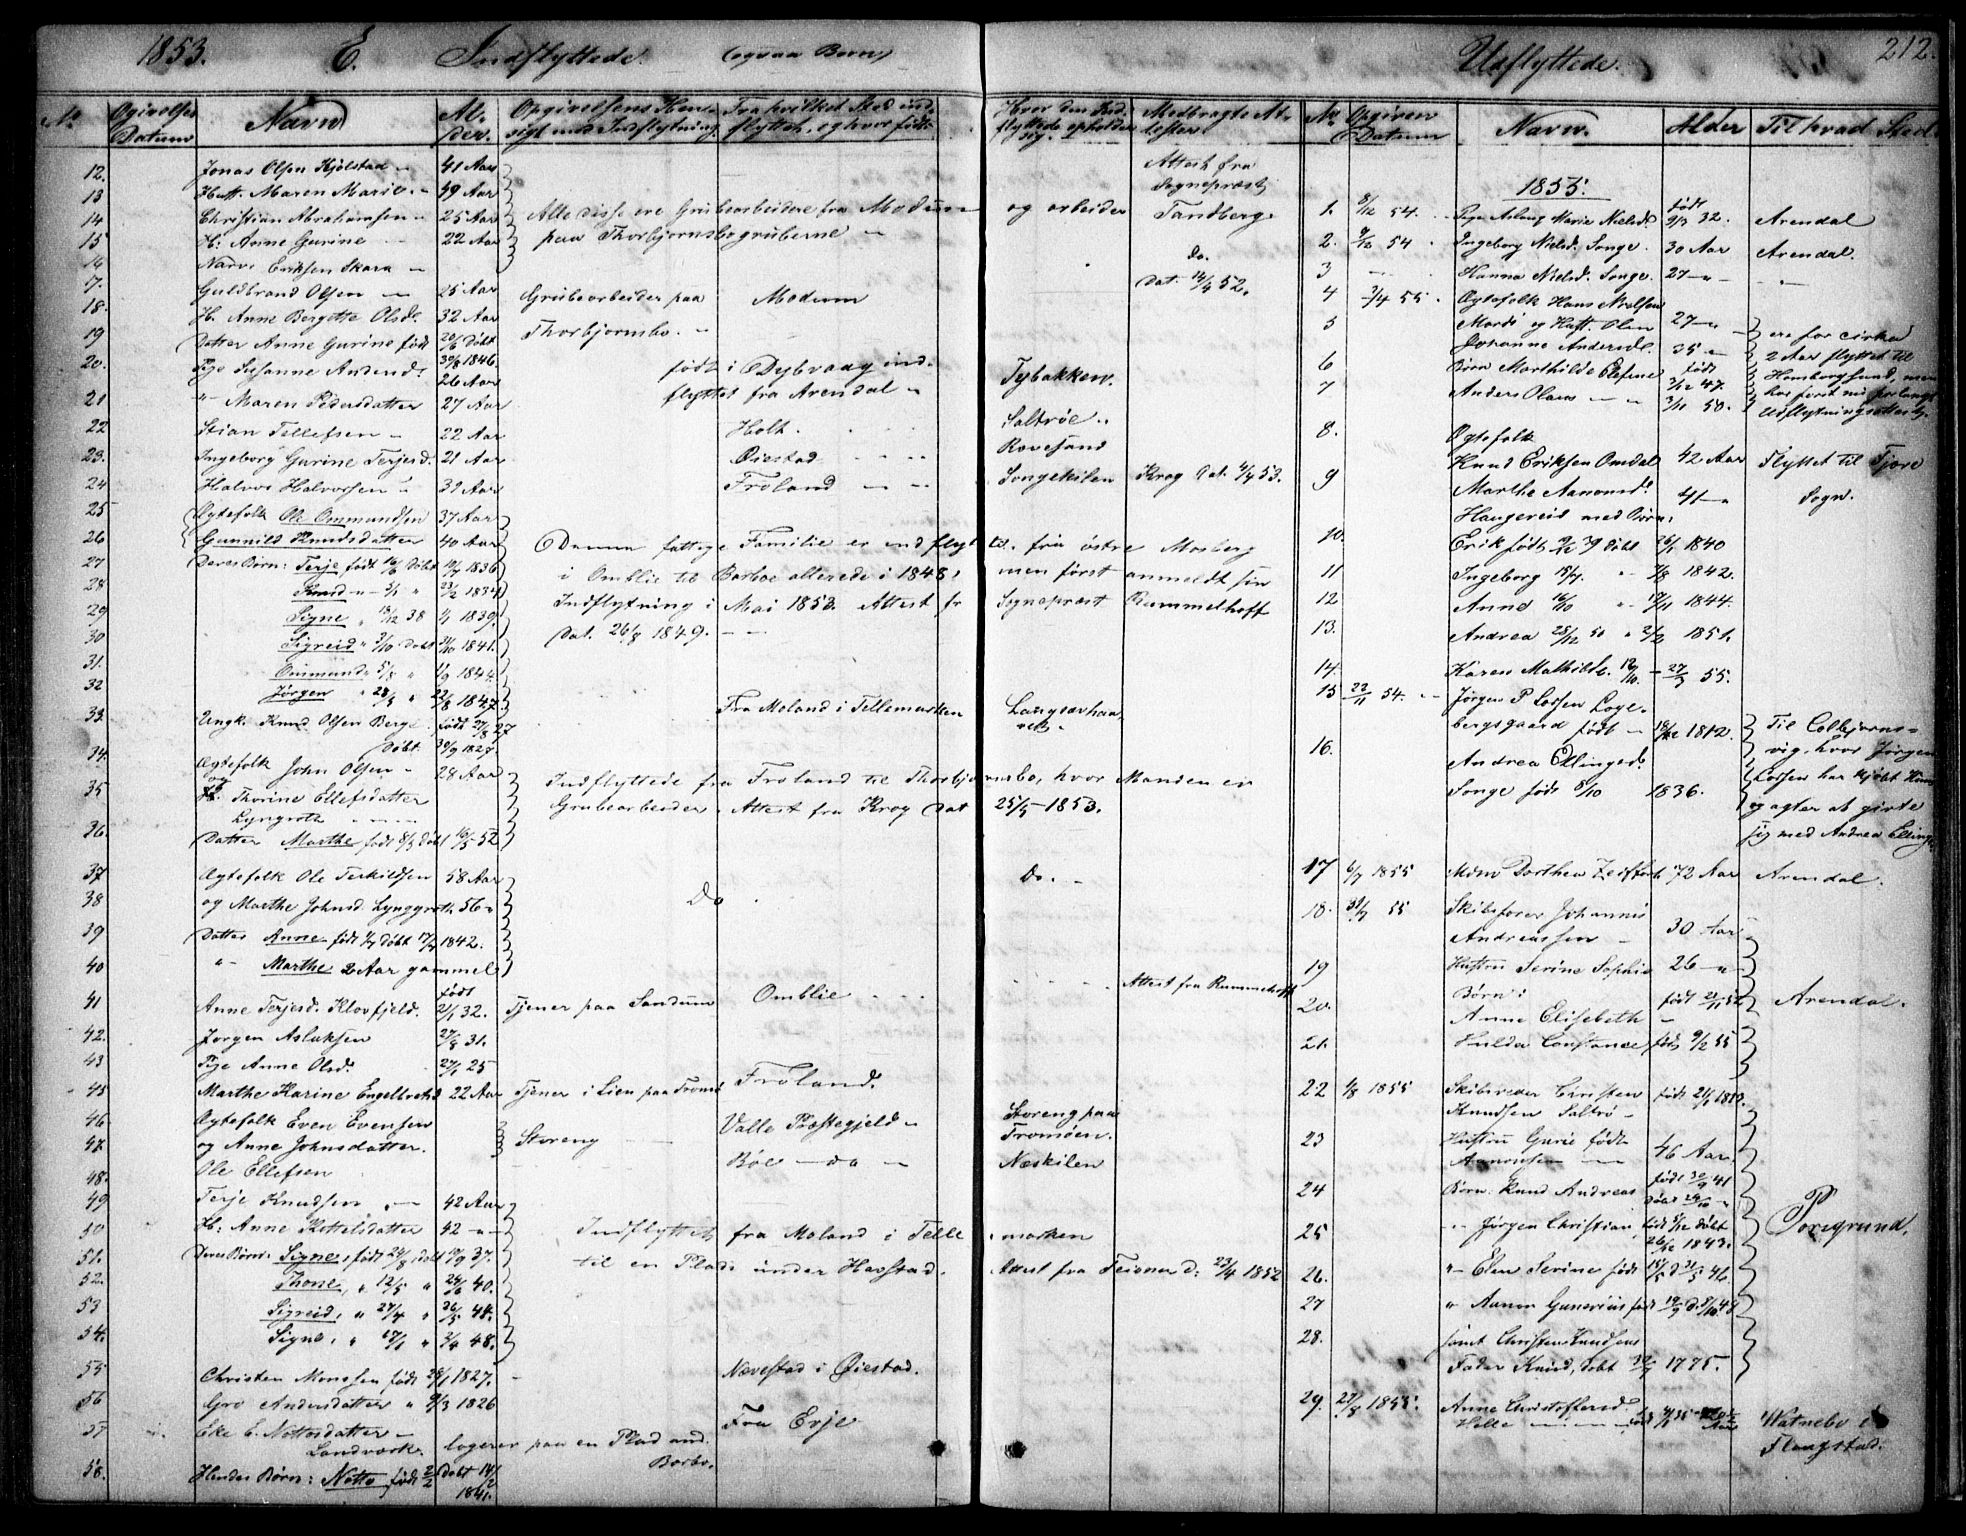 1853. E. Indflyttede (ogsaa Børn)
No Datum Navn Alder
12. Jonas Olsen Kjølstad 41 Aar
13 Hust. Maren Marie 49 Aar
14 Christian Abrahamsen 25 Aar Alle disse ere Grubearbeidere fra Modum og arbeider
15 H: Anne Gurine 22 Aar paa Thorbjørnsbogruberne
16 Narve Eriksen Skara
17. Guldbrand Olsen 25 Aar Grubearbeider paa Modum
18. H. Anne Bergette Olsd. 32 Aar
19 Datter Anne Gurine født 20/6 døbt Thorbjørnsbo.
20. Pige Susanne Andersd. 26 Aar født i Dybvaag ind- Tybakken.
21 " Maren Pedersdatter 27 Aar flyttet fra Arendal
22 Stian Tellefsen 22 Aar Holt. Saltrøe
23. Ingeborg Gurine Terjesd. 21 Aar Øiestad Rovesand
24 Halvor Halvorsen Froland Songekilen Krog Dat. 4/4 53.
25 Ægtefolk Ole Ommundsen 37 Aar
26 Gunnild Knudsdatter 40 Aar Denne fattige Familie er indflyt
27 Deres Børn: Terje født 16/6 Døbt 10/7 1836 i Omblie til Barboe allerede i 1848, men først anmeldt sin
28 Knud
29 Signe 18/12 38 1839. Indflytning i Mai 1853. Attest fr Sognepræst Rummelhoff
30 Sigreid " 3/10 Døbt 31/10 1841. Dat. 26/8 1849.
31. Ommund " 5/8 " 1/9 1844.
32 Jørgen 1847.
33. Ungk. Knud Olsen Berge født 27/8 27 Døbt 30/9 1827. Fra Moland i Tellemarken
34. Ægtefolk John Olsen 28 Aar Indflyttede fra Froland til Thorbjørnsbo, hvor Manden er
35 Thorine Ellefsdatter Lyngrote Grubearbeider. Attest fra Krog Dat 25/5 1853.
36. Datter Marthe født 8/3 døbt 16/5 52
37 Ægtefolk Ole Terkildsen 58 Aar
38 og Marthe Johnsd. Lynggroth 56 " Do Do.
39 Datter Anne født 1/7 Døbt 17/7 1842.
40 " Marthe 2 Aar gammel
41 Anne Terjesd. Klovfjeld. født 2/1 32. Tjener paa Sandum Omblie Attest fra Rummelhoff
42. Jørgen Aslaksen 27/8 31.
43 Pige Anne Olsd. 27/1 25
45 Marthe Karine Engelbretsd 22 Aar Tjener i Lien paa Tromø Froland.
46 Ægtefolk Even Evensen Storeng Valle Præstegjeld Storeng paa
47. og Anne Johnsdatter. Tromøen.
48. Ole Ellefsen Bøe do Næskilen
49 Terje Knudsen 42 Aar
50 H: Anne Kittelsdatter 42 Indflyttet fra Moland i Tellemarken
51. Deres Børn: Signe, født 24/8 døbt 17/9 37. til en Plads under Havstad. Attest fra Feiener d: 23/4 1852
52. Thone, " 12/5 " 24/6 40.
53 Sigreid, " 27/4 " 26/5 44.
54. Signe, " 17/1 " 2/4 48.
55 Christen Monsen født 28/1 1827. Nævestad i Øiestad.
56 Gro Andersdatter " 9/3 1826
57 Eke E. Nottosdatter Landværk. logerer paa en Plads und. Barbo. Fra Evje
58. Hendes Børn: Notto, født 2/2 Døbt 14/2 1841.
Attest fra
Sognepræst
Tandberg.
do.
Dat. 14/4 52.

Udflyttede. 212.
No Opgiven Datum Navn. Alder Til hvad Sted
1855.
1. 8/12 54. Pige Aslaug Marie Nielsd. født 9/3 32. Arendal
2. 9/12 54 Ingeborg Nielsd. Songe. 30 Aar Arendal.
3 Hanna Nielsd. Songe. 27
4 3/4 55. Ægtefolk Hans Nielsen 27
5 og Hust. Olen Johanne Andersd. 35 ere for cirka
6 Børn Marthilde Olefine født 7/12 47. 2 Aar flyttet til
7 Anders Olaus 3/11 50. Homborgsund, men har først nu forlangt Udflytningsattest.
8. Ægtefolk Knud Eriksen Omdal 42 Aar Flyttet til Fjære
9 Marthe Aanonsd. Haugereid med Børn: 41 Sogn.
10. Erik født 9/12 39 døbt 26/1 1840
11 Ingeborg 18/7. 7/8 1842.
12 Anne 16/10 17/11 1844.
13. Andrea 28/12 50 2/2 1851.
14. Karen Mathilde 55.
15 22/11 54. Jørgen P Lossen Løgebergsgaard født 1812. Til Colbjørnsvig, hvor Jørgen
16. Andrea Ellingsd. Songe født 8/10 1836. Lossen har kjøbt Huus og agter at gifte sig med Andrea Ellingsd.
17 6/7 1855 Mdm Dorthea Zeiffert 72 Aar Arendal.
18. 31/7 55 Skibsfører Johannis Andreassen 30 Aar
19 Hustru Serine Sophie 26
20. Børn: Anne Elisebeth født 21/11 52 Arendal.
21. Hulda Constance født 9/2 55
22 1/8 1855 Skibsreder Christen Knudsen Saltrø
23 Hustru Gurie født Aanonsen 46 Aar.
24 Børn: Knud Andreas født 41
25 Jørgen Christian født 5/12 døbt 26/12 1843. Porsgrund.
26. " Elen Serine født 15/5 d 31/5 46.
27 " Aanon Gunerius født 19/9 d. 8/10 48
28. samt Christen Knudsens Fader Knud, døbt 1775.
29. 27/8 1855. Anne Christoffersd. Helle Watnebo i Flaugstad.